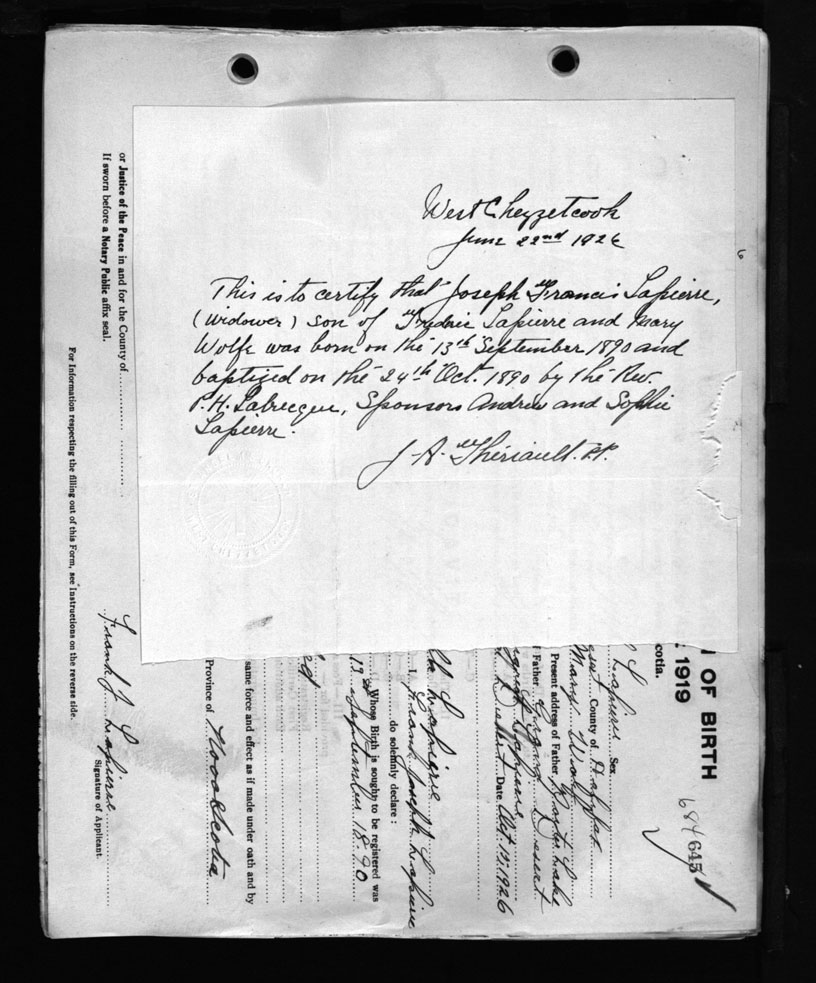 West Chezzetcook
June 22nd 1926
This is to certify that Joseph Francis Lapierre,
(widower) son of Fredric Lapierre and Mary
Wolfe was born on the 13th September 1890 and
baptized on the 24th Oct. 1890 by the Rev.
P. H. Labrecque, Sponsors Andrew and Sophie
Lapierre.
J. A. Theriault. P.P.
OF BIRTH
1919
scotia.
684645
Lapierre Sex
County of Halifax
Mary Wolf
Present address of Father
Father
Desert
Date Oct 15, 1926
Lapierre
I, Frank Joseph Lapierre
do solemnly declare :
Whose Birth is sought to be registered was
13 September 1890
same force and effect as if made under oath and by
Province of Nova Scotia
Frank J Lapierre
Signature of Applicant.
or Justice of the Peace in and for the County of
If sworn before a Notary Public affix seal.
For Information respecting the filling out of this Form, see Instructions on the reverse side.